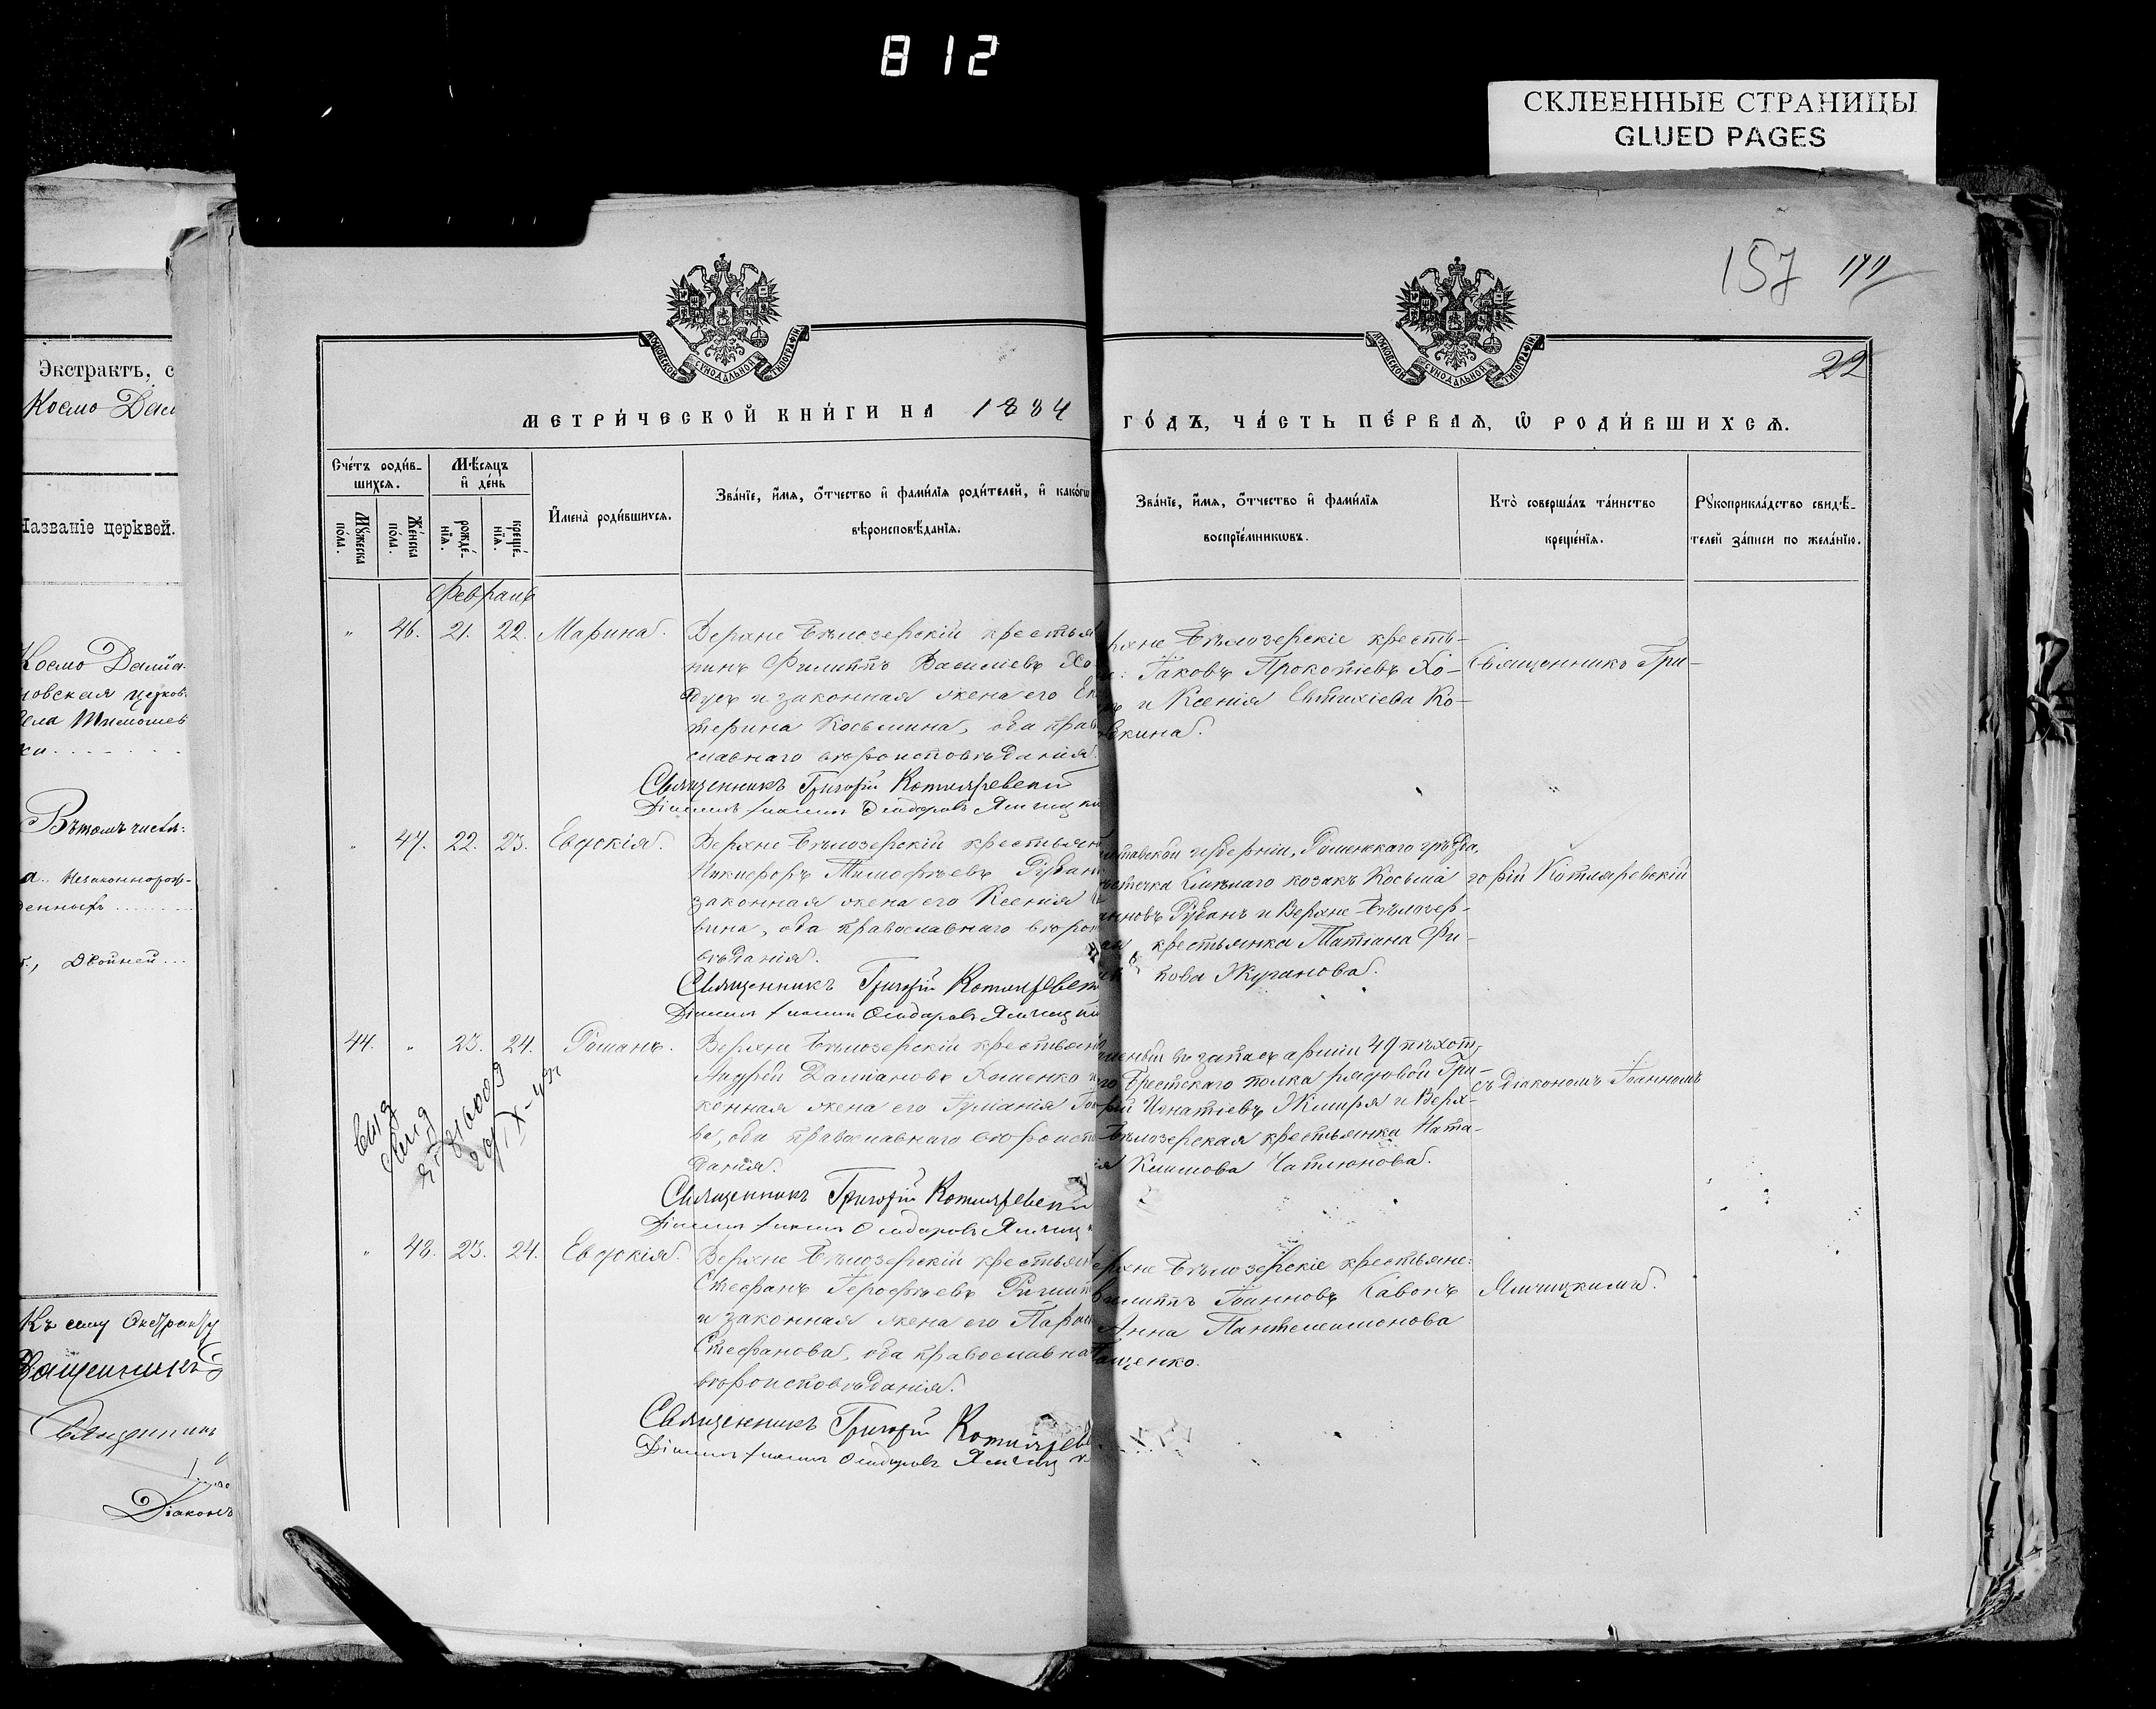 812
СКЛЕЕННЫЕ СТРАНИЦЫ
GLUED PAGES
157
22
Экстрактъ, с
Космо Дам
Названіе церквей.
Космо Даміа-
новская церков
села Тимошев
ки
Въ томъ числѣ:
Незаконнорож-
денныхъ
Двойней
Къ сему Экстракту
Священникъ
Діаконъ
МЕТРИ́ЧЕСКОЙ КНИ́ГИ НА 1884
ГО́ДЪ, ЧА́СТЬ ПЕ́РВАѦ, Ѿ РОДИ́ВШИХСѦ.
Сче́тъ роди́в-
шихсѧ.
Мꙋ́жеска по́ла.
Же́нска по́ла.
Мѣ́сѧцъ и҆ де́нь
рожде́-нїѧ.
креще́-нїѧ.
И҆мена̀ роди́вшихсѧ.
Зва́нїе, и҆́мѧ, ѻ҆́тчество и҆ фами́лїѧ роди́телей, и҆ како́гѡ
вѣроисповѣ́данїѧ.
Зва́нїе, и҆́мѧ, ѻ҆́тчество и҆ фами́лїѧ
воспрїе́мникѡвъ.
Кто̀ соверша́лъ та́инство
креще́нїѧ.
Рꙋкоприкла́дство свидѣ́-
телей за́писи по жела́нїю.
Февраль
" 46. 21. 22. Марина.
Верхне Бѣлозерскій крестья
нинъ Филиппъ Василіевъ Хо
дусъ и законная жена его Ек
терина Косьмина, оба прав
славнаго вѣроисповѣданія.
Священникъ Григорій Котляревскій
рхне Бѣлозерскіе кресть-
Іаковъ Прокопіевъ Хо-
и Ксенія Евтихіева Ко-
кина.
Священникъ Гри-
" 47. 22. 23. Евдокія.
Верхне Бѣлозерскій крестьян
Никифоръ Тимофѣевъ Рубан
законная жена его Ксенія
вина, оба православнаго вѣрои
вѣданія.
Священникъ Григорій Котляревск
тавской губерніи, Роменскаго уѣзда,
стечка Смѣлаго козакъ Косьма
нновъ Рубанъ и Верхне-Бѣлозер-
ая крестьянка Татіана Фи-
пова Журанова.
горій Котляревскій
44. " 23. 24. Романъ.
Верхне Бѣлозерскій крестьян
Андрей Даміановъ Хоменко и
конная жена его Іуліанія
ва, оба православнаго вѣроисп
данія.
Священникъ Григорій Котляревскі
ленный въ запасъ арміи 49 пѣхот-
го Брестскаго полка рядовой Гри-
рій Игнатіевъ Жмиря и Верх-
Бѣлозерская крестьянка Ната-
ія Климова Чаплюнова.
съ діакономъ Іоанномъ
" 48. 23. 24. Евдокія.
Верхне Бѣлозерскій крестьян
Стефанъ Герофѣевъ
и законная жена его Параск
Стефанова, оба православна
вѣроисповѣданія.
Священникъ Григорій Котляревс
ерхне Бѣлозерскіе крестьяне:
Филиппъ Іоанновъ Савонъ
Анна Пантелеимонова
ащенко.
Ямчицкимъ.